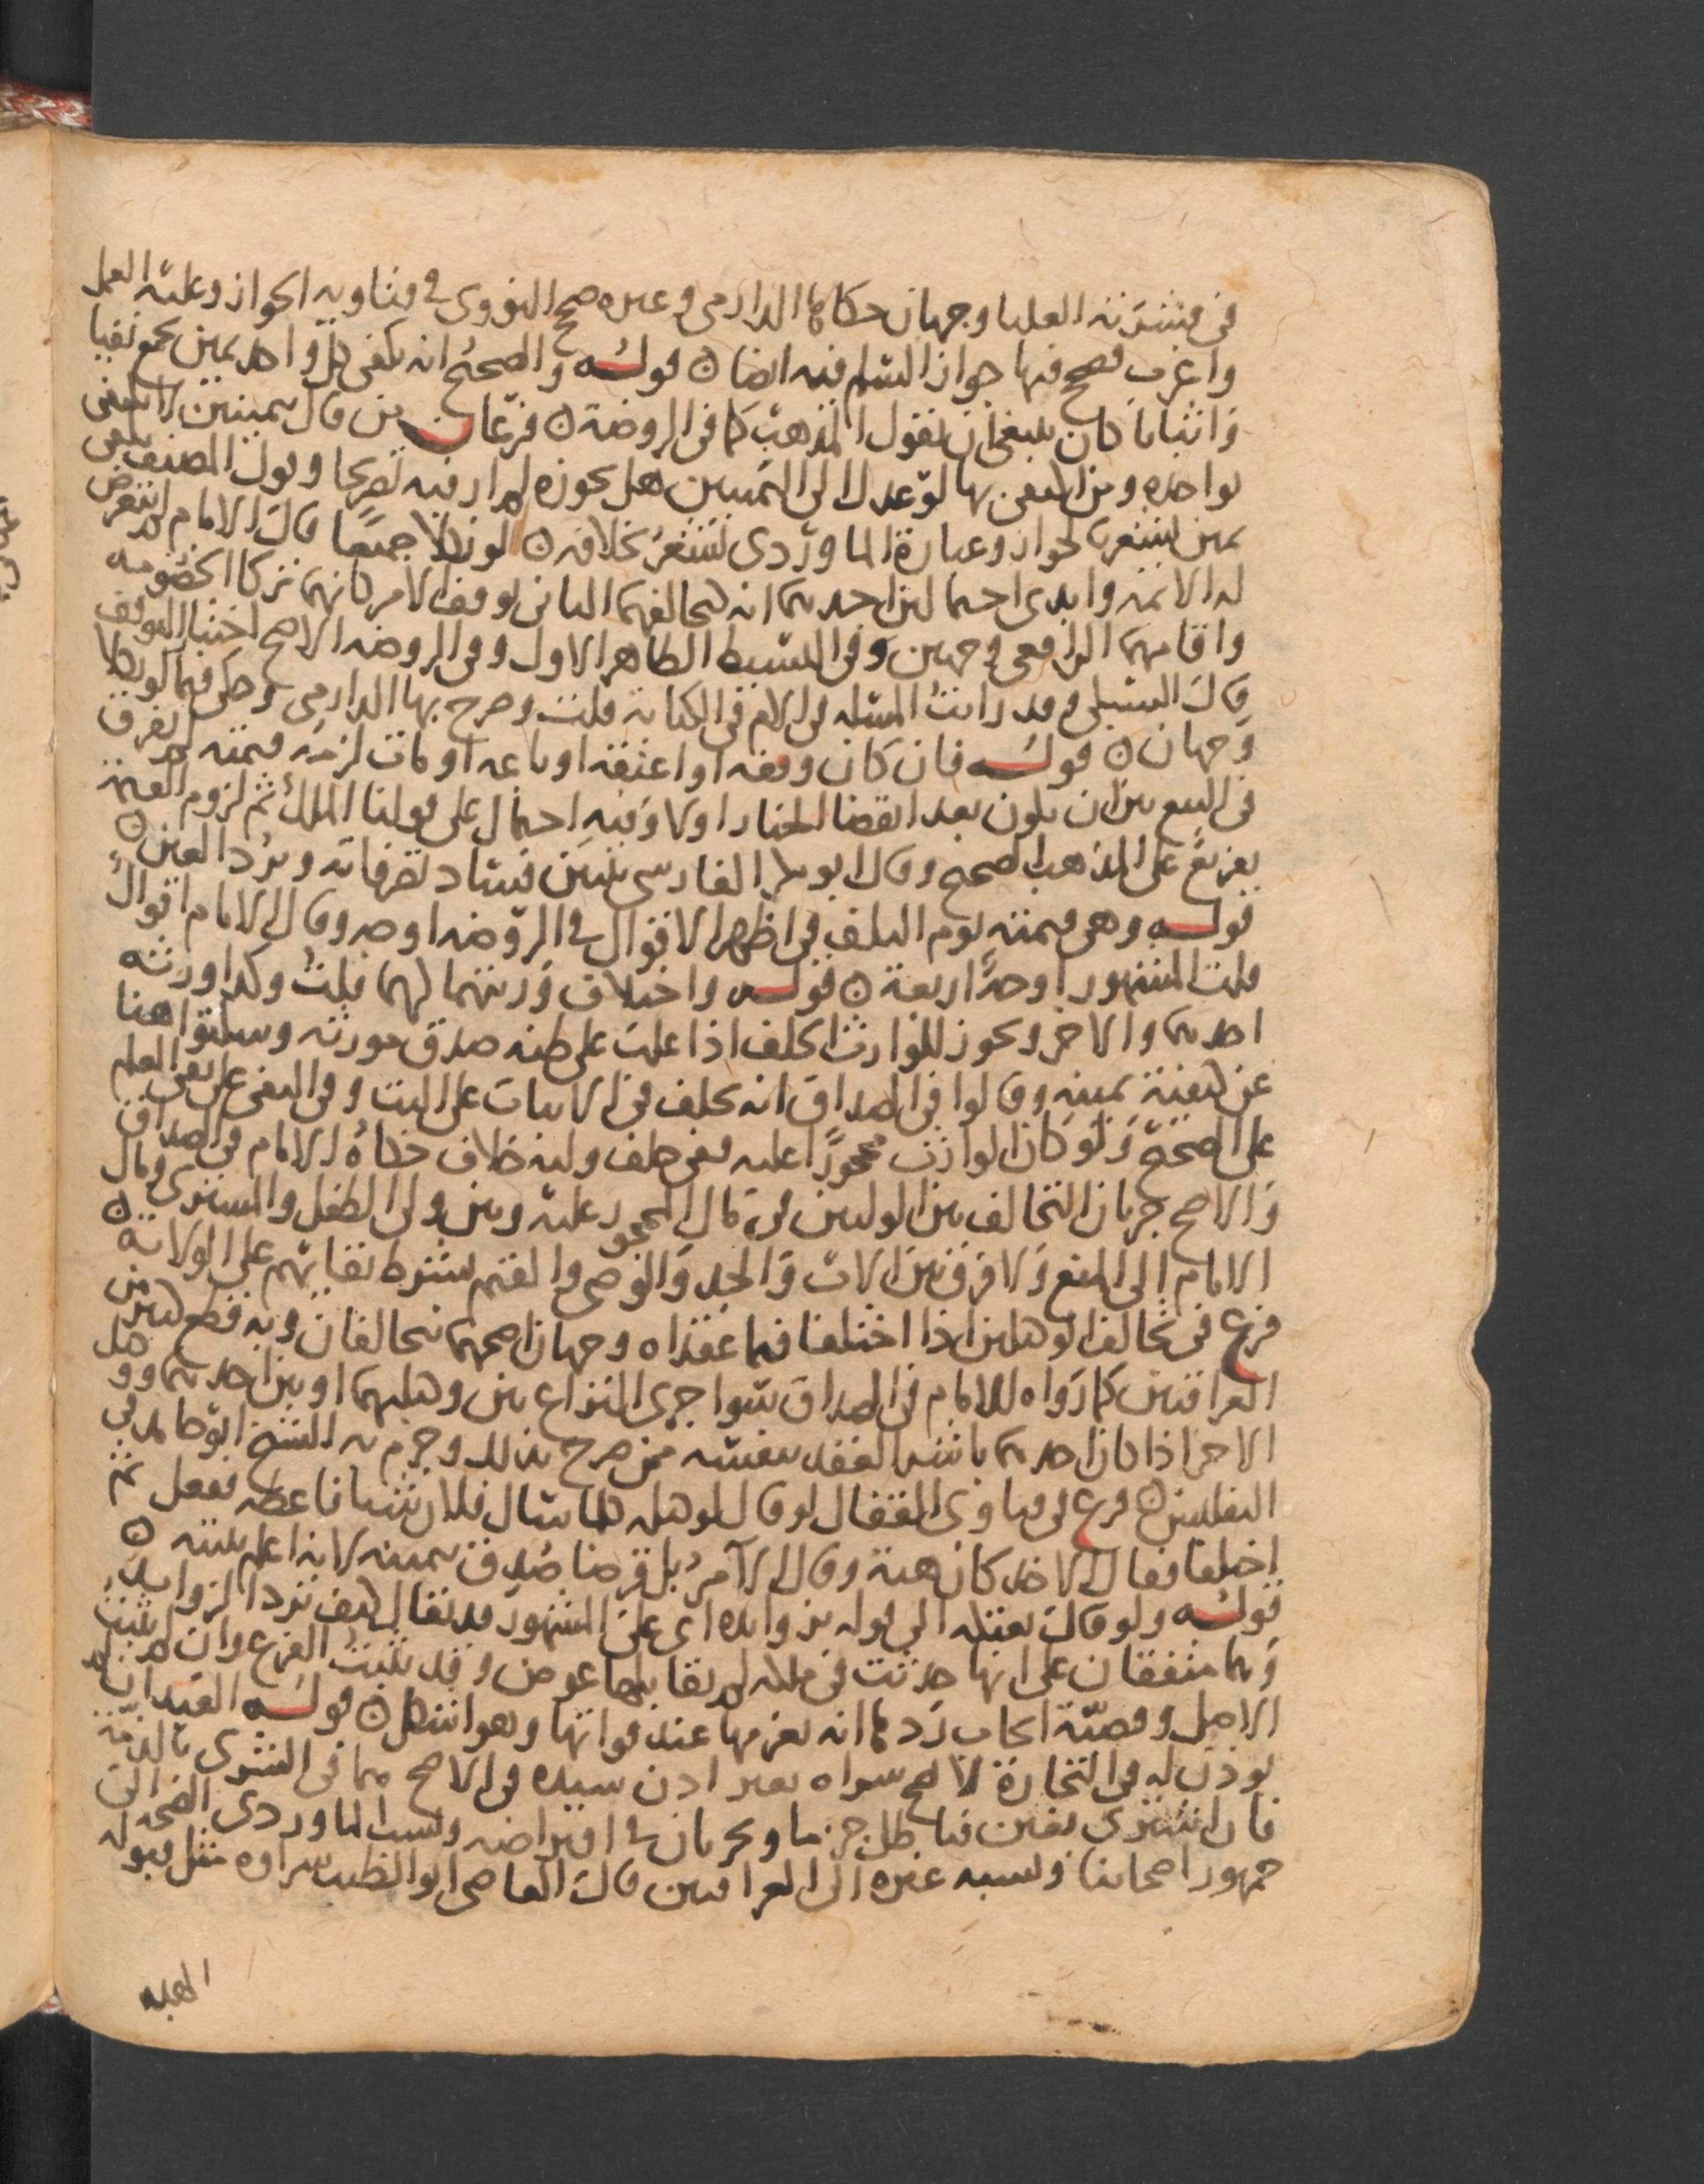 في قشرته العليا وجهان حكاهما الدارمي وغيره صحح النووي في فتاويه الجواز وعليه العمل
واغرب فصحح فيها جواز السلم فيه ايضا ۞ قوله والصحيح انه يكفي كل واحد يمين تجمع نفيا
واثباتا كان ينبغي ان يقول المذهب كما في الروضة ۞ فرعان من قال بيمينين لا يكتفي
بواحده ومن اكتفى بها لو عدل الى اليمينين هل يجوزه لم ار فيه تصريحا وقول المصنف يكفي
يمين يشعر بالجواز وعبارة الماوردي تشعر بخلافه ۞ لو نكلا جميعا قال الامام لم يتعرض
له الائمه وابدى احتمالين احدهما انه كتحالفهما الثاني يوقف الامر كانهما تركا الخصومه
واقامهما الرافعي وجهين وفي البسيط الظاهر الاول وفي الروضه الاصح اختيار التوقف
قال السبكي وقد رايت المسله في الام في الكتابة قلت وصرح بها الدارمي وحكى فيما لو نكلا
وجهان ۞ قوله فان كان وقفه او اعتقه او باعه او مات لزمه قيمته لم يفرق
في البيع بين ان يكون بعد انقضا الخيار او لا وفيه احتمال على قولنا الملك ثم لزوم القيمة
تفريع على المذهب الصحيح وقال ابو بكر الفارسي يتبين فساد تصرفاته ويرد العين ۞
قوله وهي قيمته يوم التلف في اظهر الاقوال في الروضه اوجه وقال الامام اقوال
قلت المشهور اوجه اربعة ۞ قوله واختلاف ورثتهما كهما قلت وكذا ورثه
احدهما والاخر ويجوز للوارث الحلف اذا غلب على ظنه صدق مورثه وسكتوا هنا
عن كيفية يمينه وقالوا في الصداق انه يحلف في الاثبات على البت وفي النفي على نفي العلم
على الصحيح ولو كان الوارث محجورا عليه ففي حلف وليه خلاف حكاه الامام في الصداق
والاصح جريان التحالف بين الوليين في مال المحجور عليه وبين ولي الطفل والمشتري ومال
الامام الى المنع ولا فرق بين الاب والجد والوصي والقيم بشرط بقائهم على الولاية ۞
فرع في تحالف الوكيلين اذا اختلفا فيما عقداه وجهان اصحهما يتحالفان وبه قطع كثير من
العراقيين كما رواه الامام في الصداق سوا جرى النزاع بين وكيليهما او بين احدهما ووكيل
الاخر اذا كان احدهما باشر العقد بنفسه ممن صرح بذلك وجزم به الشيخ ابو حامد في
التفليس ۞ فرع في فتاوي القفال لو قال لوكيله كلما سال فلان شيا فاعطه ففعل ثم
اختلفا فقال الاخذ كان هبة وقال الآمر بل قرضا صدق بيمينه لانه اعلم بنيته ۞
قوله ولو قال بعتكه الى قوله بزوايده اي على المشهور قد يقال كيف ترد الزوايد
وهما متفقان على انها حدثت في ملكه لم يقابلها عوض وقد يثبت الفرع وان لم يثبت
الاصل وقضية ايجاب ردها انه يغرمها عند فواتها وهو اشكل ۞ قوله العبد ان لم
يوذن له في التجارة لا يصح شراه بغير اذن سيده في الاصح هما في الشرى بالذمة
فان اشترى بعين فباطل جزما ويجريان في اقتراضه ونسب الماوردي الصحه الى
جمهور اصحابنا ونسبه غيره الى العراقيين قال القاضي ابو الطيب شراوه مثل قبوله
الهبه